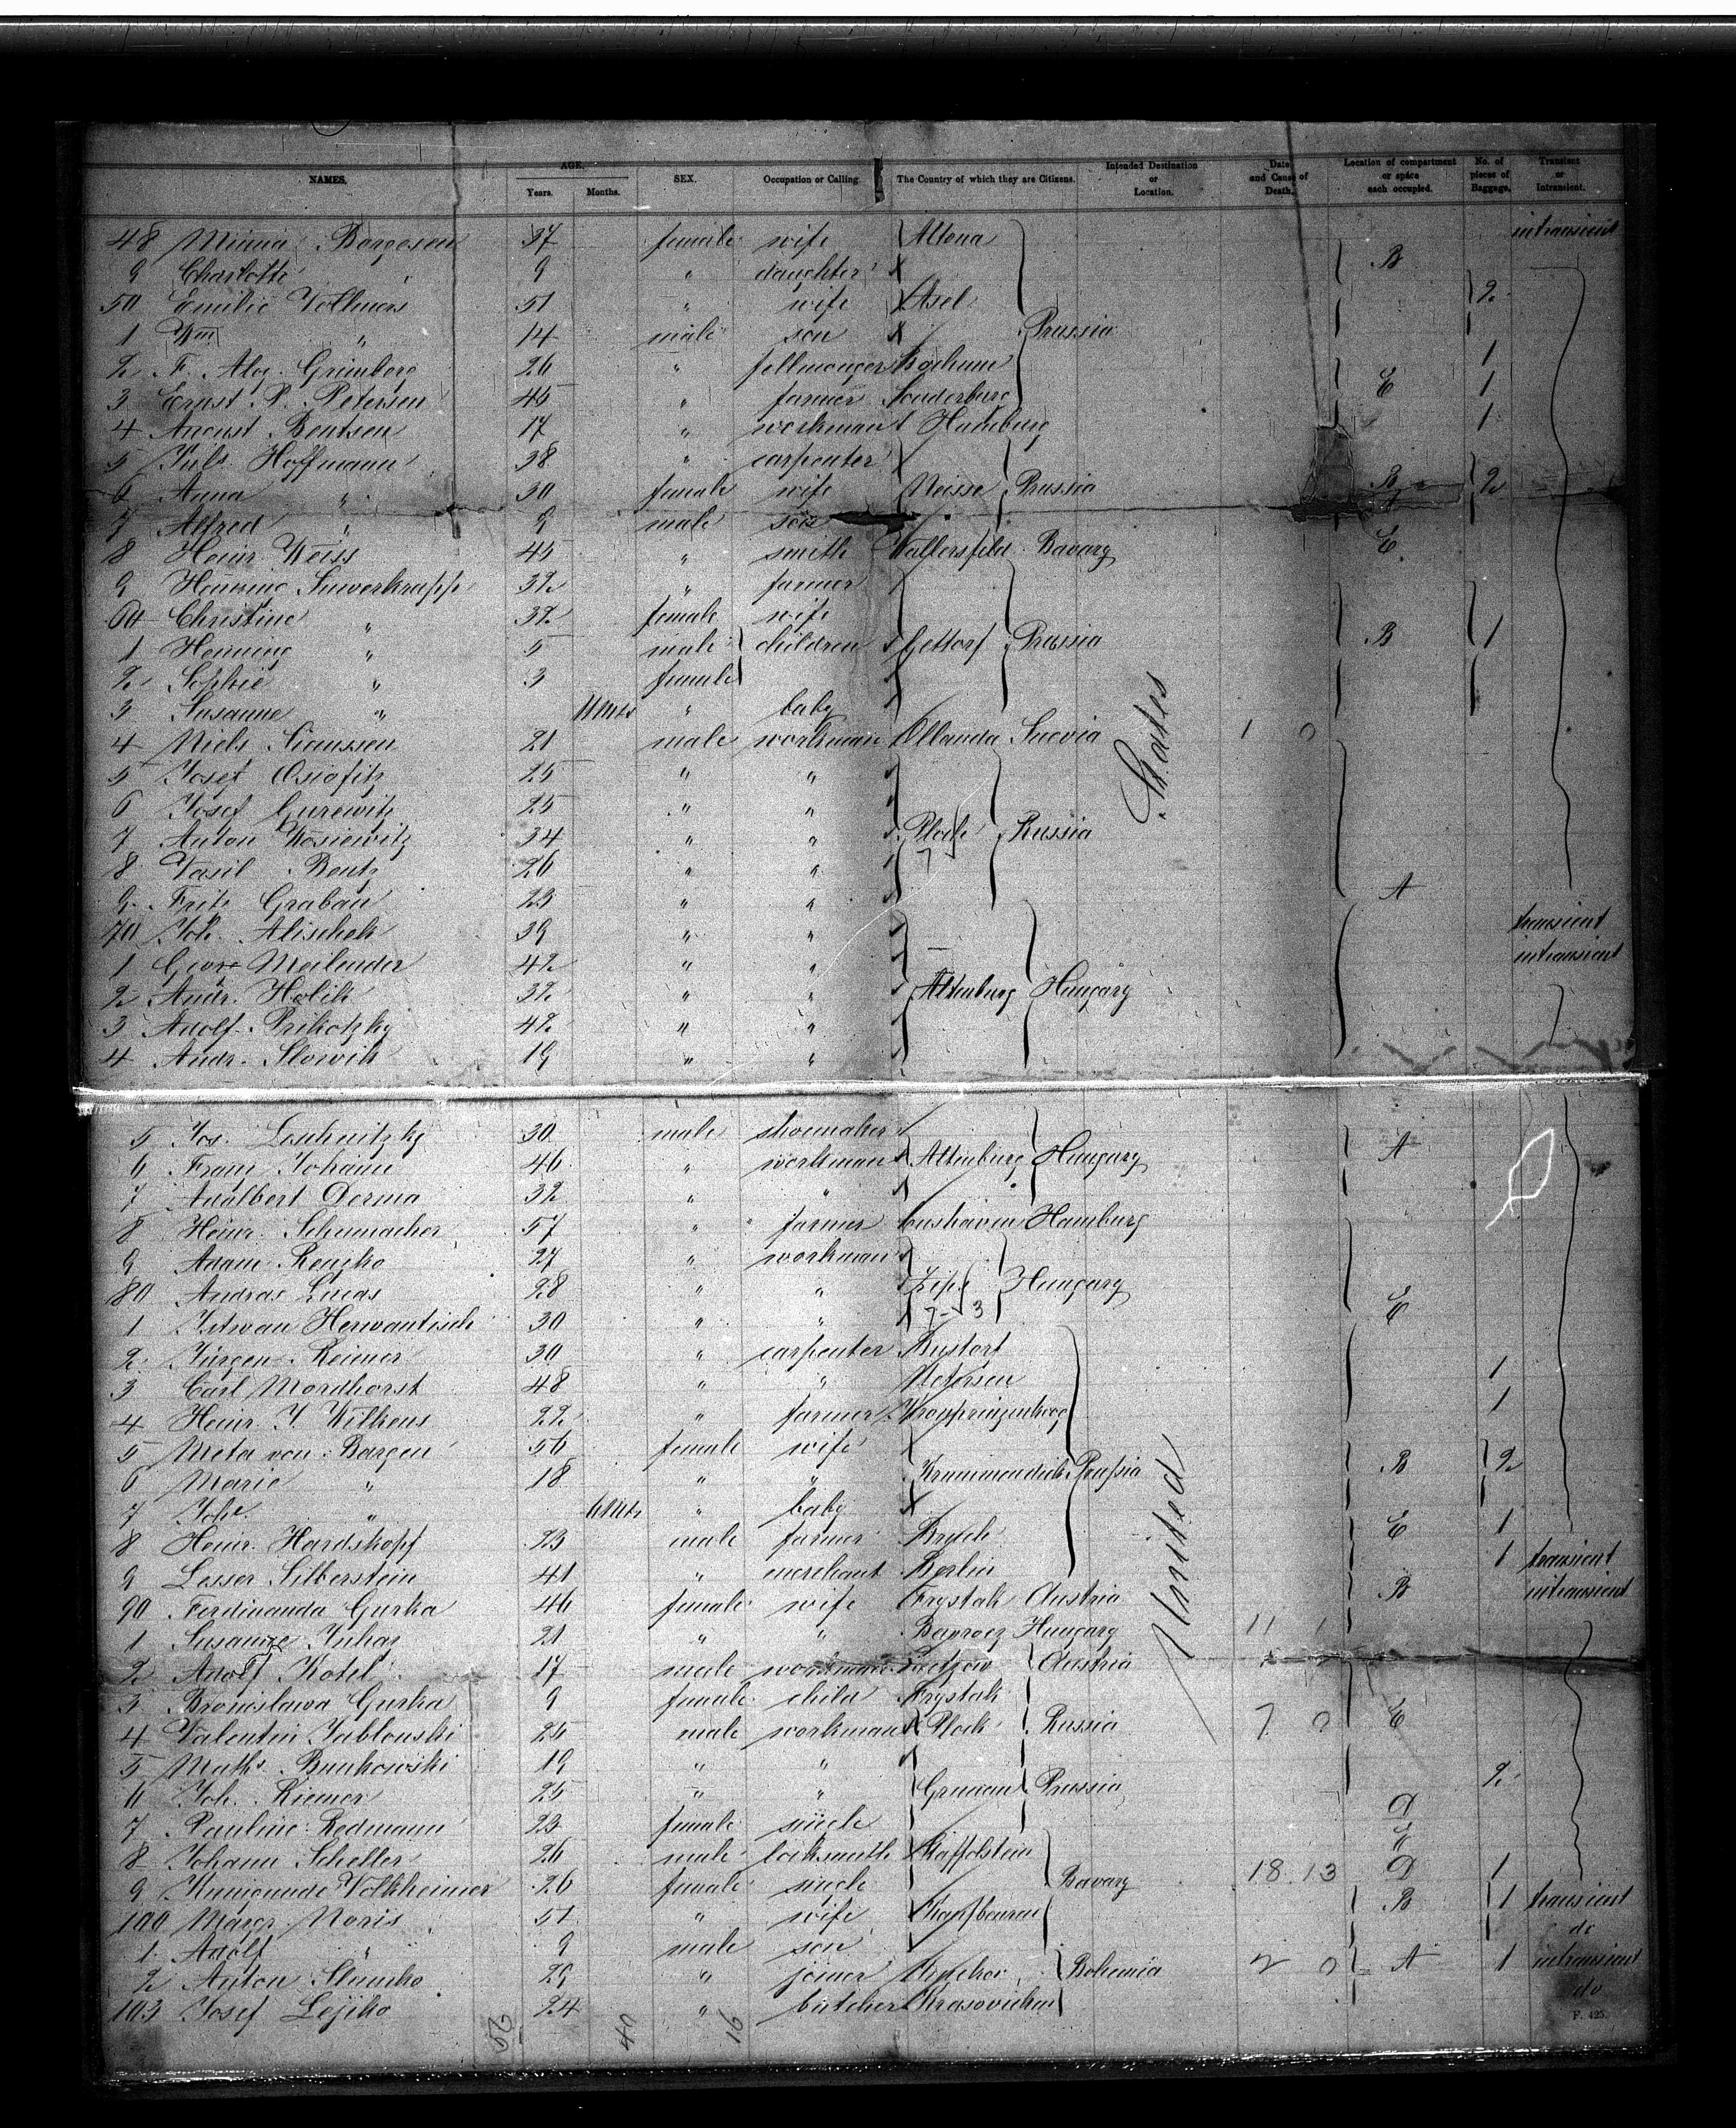 NAMES. AGE. Years. Months. SEX. Occupation or Calling. The Country of which they are Citizens. Intended Destination or Location. Date and Cause of Death. Location of compartment or space each occupied. No. of pieces of Baggage. Transient or Intransient.
48 Minna Borgesen 37 female wife Altona intransient
9 Charlotte " 9 " daughter B
50 Emilie Vollmers 51 " wife Asel 2
1 Wm " 14 male son Prussia
2 F. Aug. Grimberg 26 " fellmonger Bochum 1
3 Ernst P. Petersen 45 " farmer Sonderburg E 1
4 August Bentsen 17 " workman Hamburg 1
5 Juls. Hoffmann 38 " carpenter
6 Anna " 30 female wife Neisse Prussia B 2
7 Alfred " 9 male son
8 Heinr. Weiss 45 " smith Bavary E
9 Henning Suverkrapp 32 " farmer
60 Christine " 32 female wife
1 Henning " 5 male children Gettorf Prussia B 1
2 Sophie " 3 female
3 Susanne " 11 Mts " baby
4 Niels 21 male workman Suevia 1 0
5 Josef 25 " "
6 Josef Gurewitz 25 " "
7 Anton Kosiewitz 34 " " Plock Russia
8 Vasil Bentz 26 " " 7
9 Fritz Grabau 23 " " A
70 Joh. Alischek 39 " " transient
1 Georg Meilender 42 " " intransient
2 Andr. Holik 32 " " Altenburg Hungary
3 Adolf Prikotzky 42 " "
4 Andr. Slowik 19 " "
States
5 Jos. Loschnitzky 30 male shoemaker A
6 Franz Johann 46 " workman Altenburg Hungary
7 Adalbert Derma 32 " "
8 Heinr. Schumacher 57 " farmer Cuxhaven Hamburg
9 Adam Renzko 27 " workman
80 Andras Lucas 28 " " Zips Hungary
1 Istvan Herwantisch 30 " " 7 3 E
2 Jürgen Reimer 30 " carpenter
3 Carl Mordhorst 48 " " Uetersen 1
4 Heinr. J. Wilkens 22 " farmer Kronprinzenkoog 1
5 Meta von Bargen 56 female wife
6 Marie " 18 " " Krummendiek Prussia B 2
7 Joh. " 6 Mts " baby
8 Heinr. Hardekopf 23 male farmer E 1
9 Lesser Silberstein 41 " merchant Berlin 1 transient
90 Ferdinanda Gurka 46 female wife Frystak Austria B intransient
1 Susanne Juhaz 21 " " Hungary 11 1
2 Adolf Kotel 17 male workman Austria
3 Bronislawa Gurka 9 female child Frystak
4 Valentin Jablonski 25 male workman Plock Russia 7 0 E
5 Maths. Bunkowski 19 " "
6 Joh. Riemer 25 " " Prussia 2
7 Pauline Redmann 23 female single D
8 Johann Scheller 26 male locksmith Staffelstein E
9 Kunigunde Volkheimer 26 female single Bavary 18 13 D 1
100 Margr. Noris 51 " wife Kaufbeuren B 1 transient
1 Adolf " 9 male son do
2 Anton 29 " joiner Bohemia 2 0 A 1 intransient
103 Josef Lejiko 24 " butcher do
United
56 40 16
F. 425.